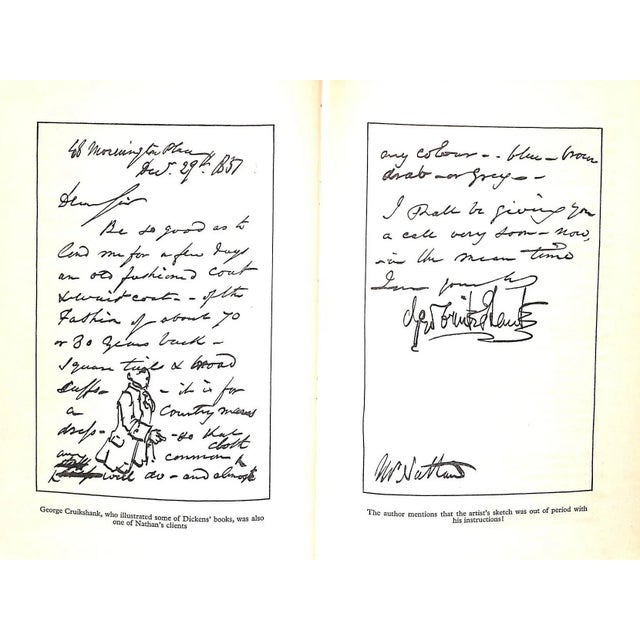 48 Mornington Place
Decr. 29th 1857
Dear Sir
Be so good as to
lend me for a few days
an old fashioned coat
& waistcoat - of the
Fashion of about 70
or 80 years back -
Square tails & broad
Cuffs - - it is for
a Country mans
dress - - so that
any cloth common
will do - and almost
George Cruikshank, who illustrated some of Dickens' books, was also
one of Nathan's clients
any colour - - blue - brown
drab - or Grey - -
I shall be giving you
a call very soon - now,
- in the mean time
I am yours
Geo Cruikshank
Mr. Nathan
The author mentions that the artist's sketch was out of period with
his instructions!